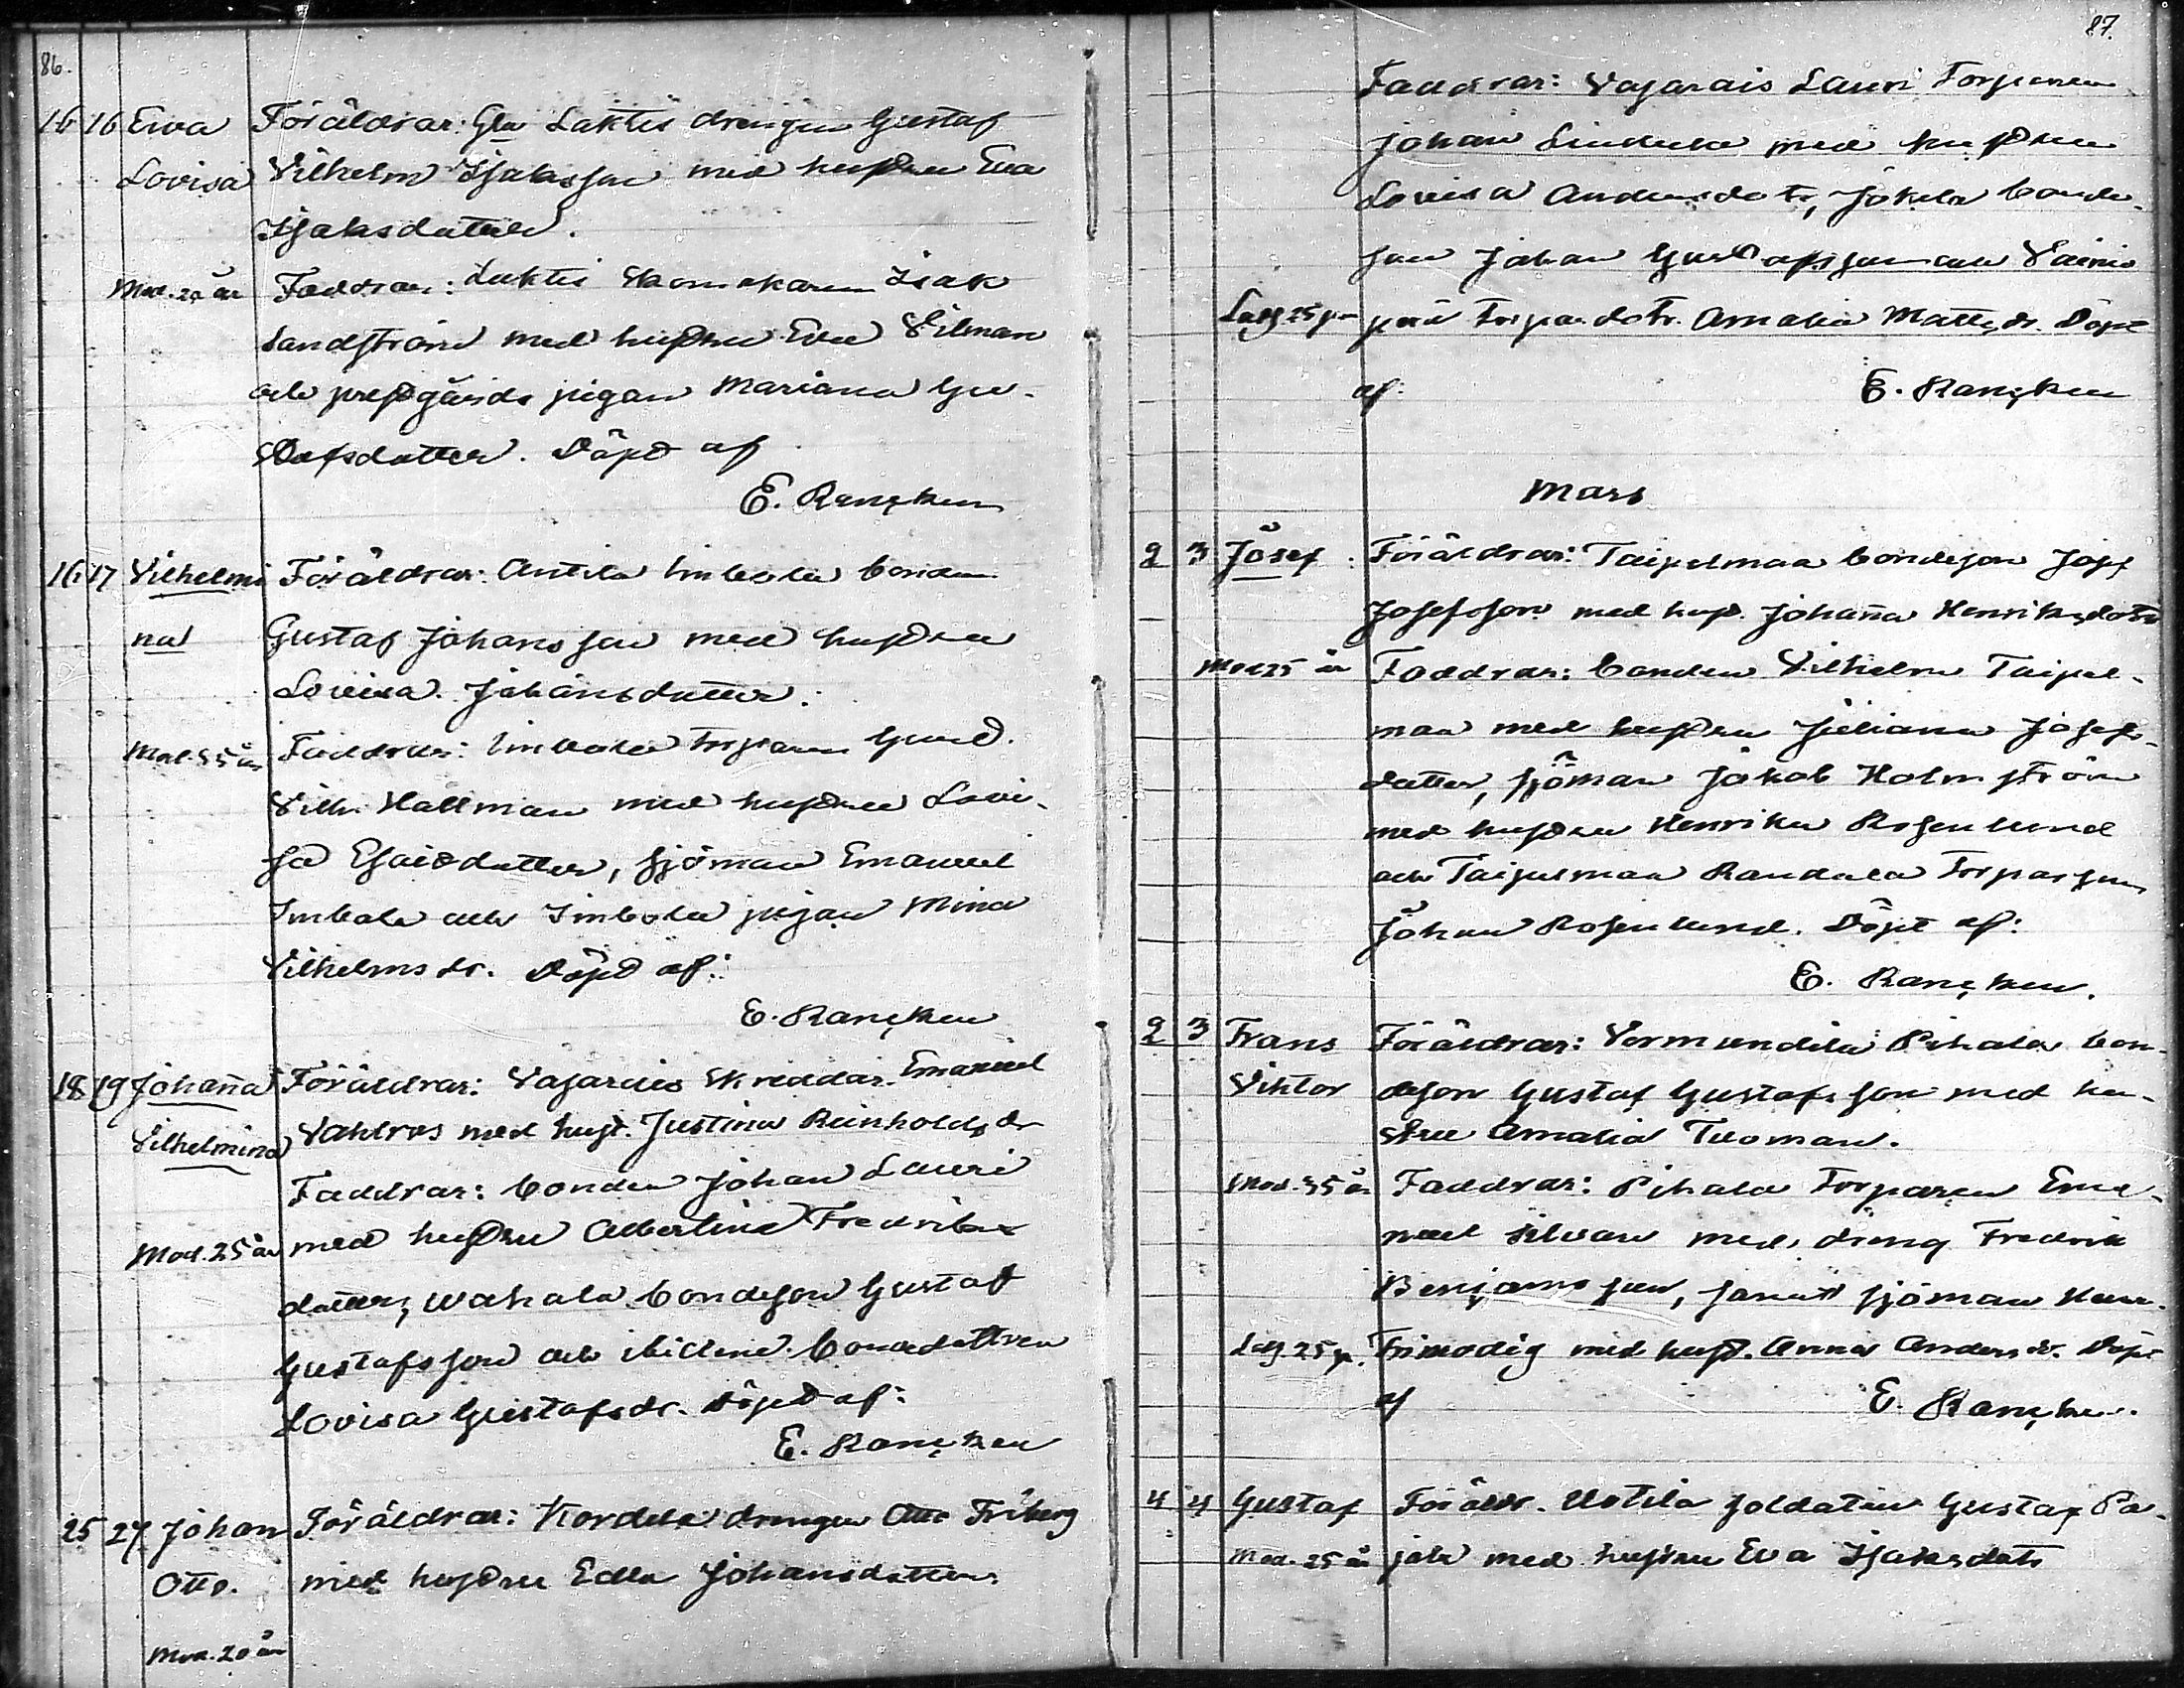 86.
16 16 Ewa Föräldrar: Gla Laktis drengen Gustaf
Lovisa Vilhelm Isaksson med hustru Eva
Isaksdatter.
Mod. 20 år Faddrar: Laktis Skomakaren Isak
Sandström med hustru Eva Silman
och prestgårds pigan Mariana Gu-
stafsdatter. Döpt af
E. Rancken
16 17 Vilhelmi Föräldrar: Antila Imbola bonden
na Gustaf Johansson med hustru
Lovisa Johansdatter.
Mod. 35 år Faddrar: Imbola torparen Gust.
Vilh. Hallman med hustru Lovi-
sa Esaiedatter, sjöman Emanuel
Imbola och Imbola pigan Mina
Vilhelmsdr. Döpt af:
E. Rancken
18 19 Johanna Föräldrar: Vasarais Skreddar. Emanuel
Vilhelmina Vahlros med hust. Justina Reinholdsdr
Faddrar: bonden Johan Lauri
Mod. 25 år med hustru Albertina Fredriks
datter, Wahala bondeson Gustaf
Gustafsson och ibidem bondedottren
Lovisa Gustafsdr. Döpt af:
E. Rancken
25 27 Johan Föräldrar: Kordela drengen Otto Friberg
Otto. med hustru Edla Johansdatter.
Mod. 20 år
87.
Faddrar: Vasarais Lauri Torparen
Johan med hustru
Lovisa Andersdotr, Jokela bonde-
son Johan Gustafsson och Vainio
Lagg 25 p. torparedotr. Amalia Mattsdr. Döpt
af: E. Rancken
Mars
2 3 Josef Föräldrar: Taipelmaa bondeson Josef
Josefsson med hust. Johanna Henriksdotr
Mod 25 år Faddrar: bonden Vilhelm Taipel-
maa med hustru Juliana Josefs-
datter, sjöman Jakob Holmström
med hustru Henrika Rosenlund
och Taipelmaa Randala Torparson
Johan Rosenlund. Döpt af:
E. Rancken.
2 3 Frans Föräldrar: Vermundila Pihala bon-
Viktor deson Gustaf Gustafsson med hu-
stru Amalia Tuoman.
Mod. 35 år Faddrar: Pihala Torparen Ema-
nuel Silvan med dreng Fredrik
Benjamsson, samt sjöman
Lagg. 25 p. Frimodig med hust. Anna Andersdr. Döpt
af E. Rancken.
4 4 Gustaf Föräldr. Uotila Soldaten Gustaf Pa-
Mod. 25 år jala med hustru Eva Isaksdatr